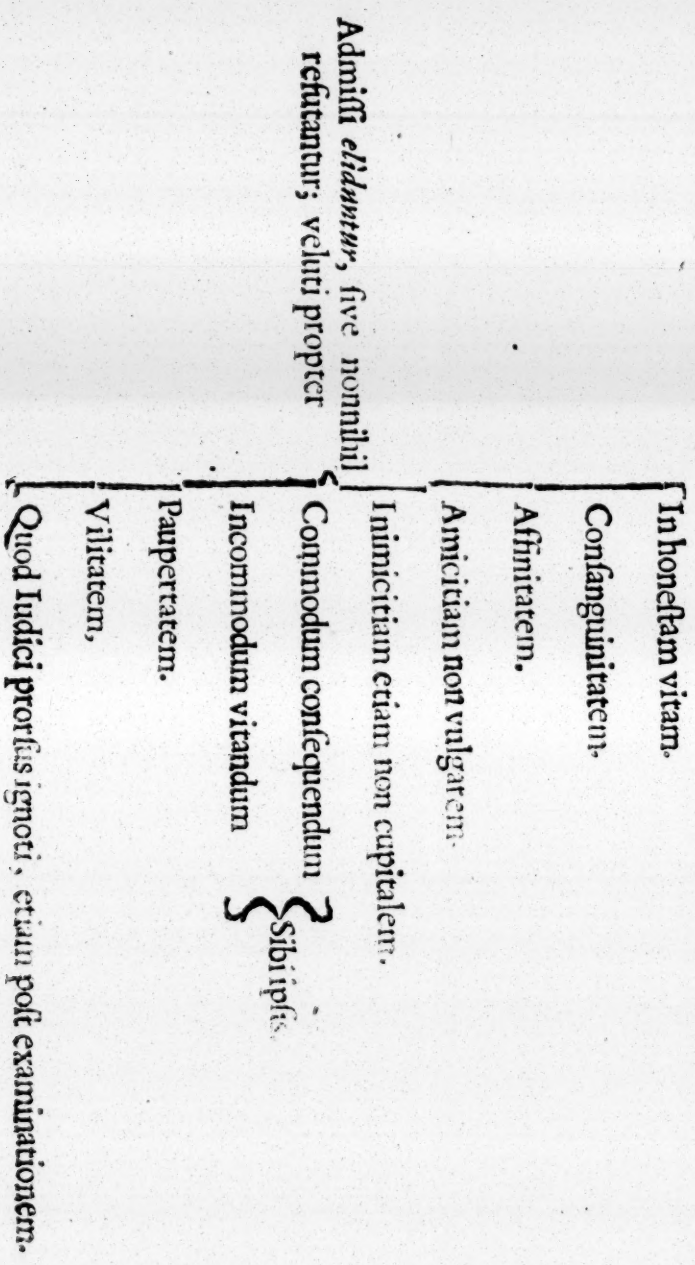 Admiſſi eliduntur, ſive nonnihil
refutantur; veluti propter
Inhoneſtam vitam.
Conſanguinitatem.
Affinitatem.
Amicitiam non vulgarem.
Inimicitiam etiam non cupitalem.
Commodum conſequendum
Incommodum vitandum
Sibi ipſis.
Paupertatem.
Vilitatem,
Quod Iudici prorſus ignoti, etiam poſt examinationem.